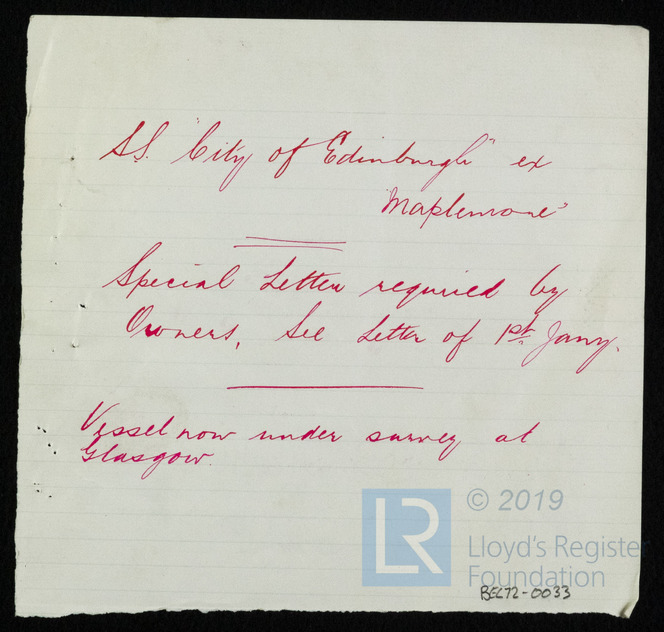 S.S. "City of Edinburgh" ex
"Maplemore"
Special Letter required by
Owners, See Letter of 1st Jany.
Vessel now under survey at
Glasgow.
LR
© 2019
Lloyd's Register
Foundation
BEC72-0033